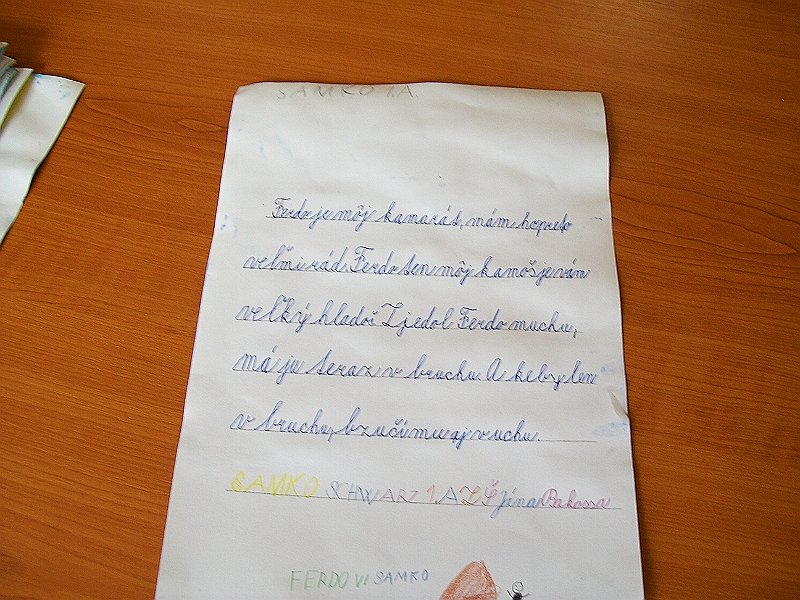 SAMKO 1.A.
Ferdo je môj kamarát, mám ho preto
veľmi rád. Ferdo ten môj kamoš je vám
veľký hladoš. Zjedol Ferdo muchu,
má ju teraz v bruchu. A keby len
v bruchu, bzučí mu aj v uchu.
SAMKO SCHWARZ 1.A ZŠ Jána Bakossa
FERDOVI SAMKO